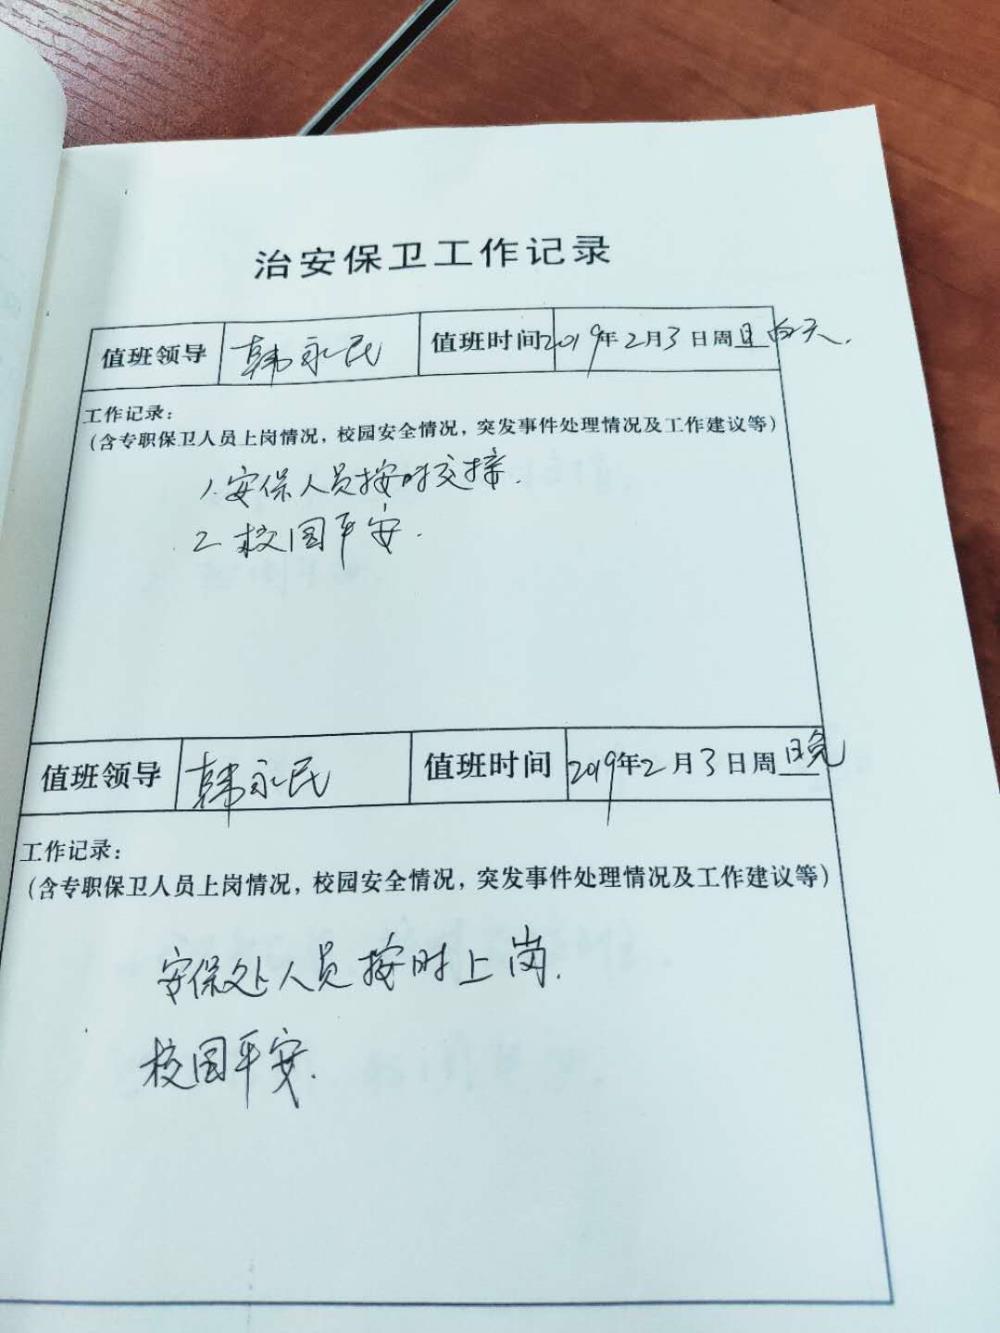 治安保卫工作记录
值班领导 韩永民 值班时间 2019年2月3日周日白天.
工作记录:
(含专职保卫人员上岗情况，校园安全情况，突发事件处理情况及工作建议等)
1.安保人员按时交接.
2.校园平安.
值班领导 韩永民 值班时间 2019年2月3日周日晚
工作记录:
(含专职保卫人员上岗情况，校园安全情况，突发事件处理情况及工作建议等)
安保处人员按时上岗.
校园平安.